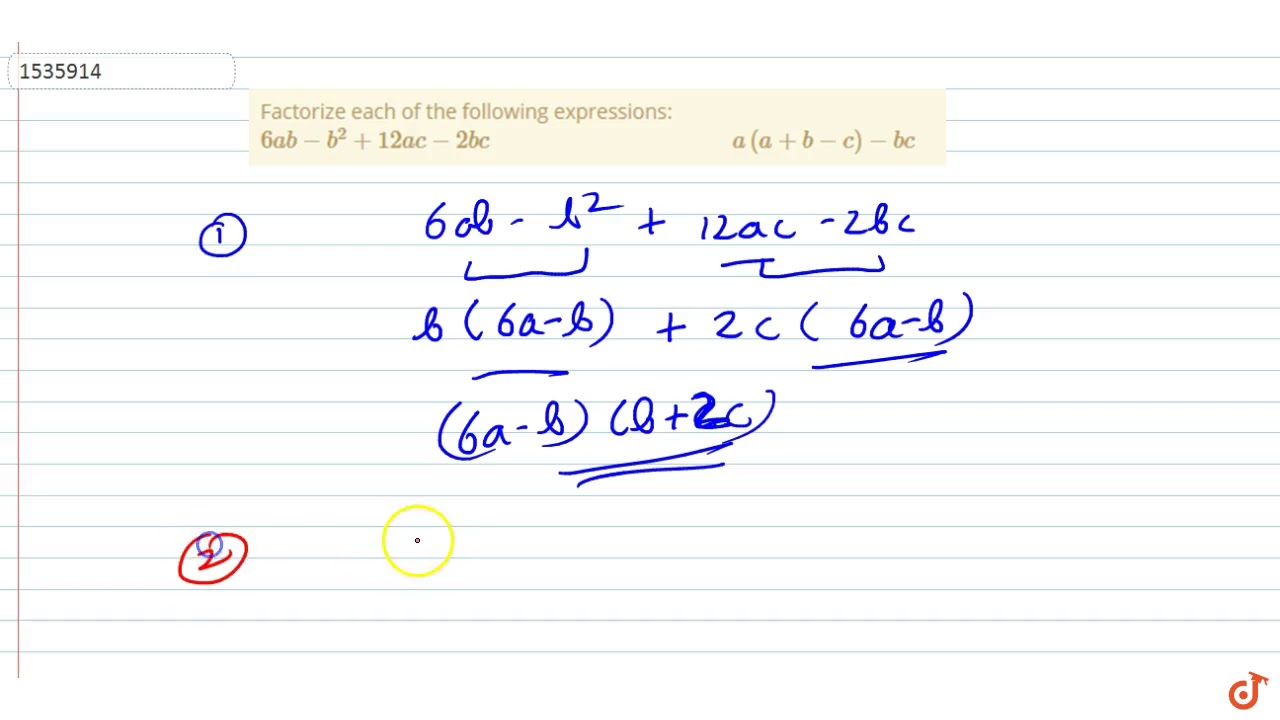 1535914
Factorize each of the following expressions:
6ab − b² + 12ac − 2bc a (a + b − c) − bc
① 6ab - b² + 12ac - 2bc
b (6a-b) + 2c (6a-b)
(6a-b) (b+2c)
②